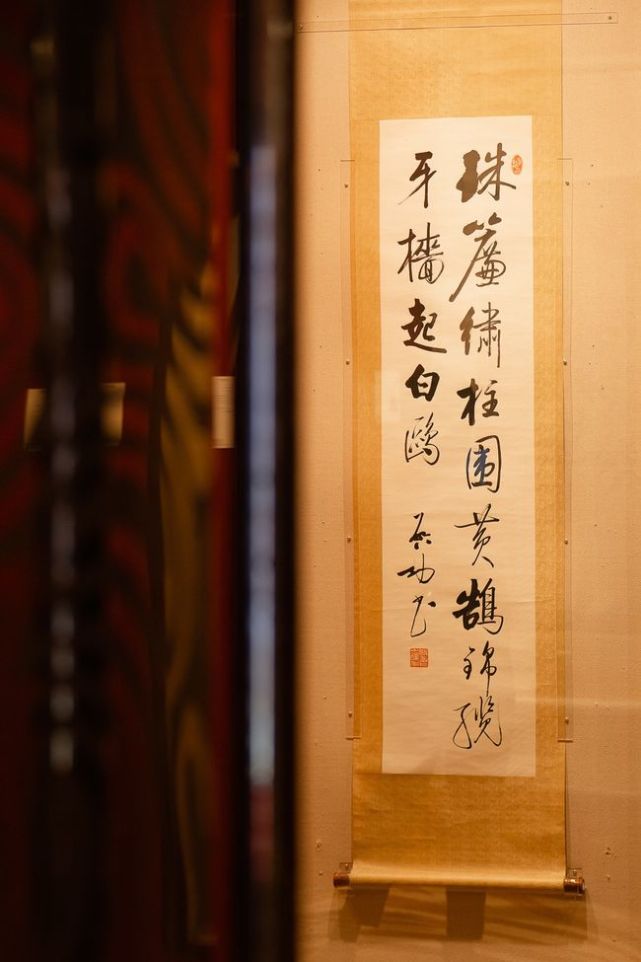 珠簾繡柱圍黃鵠錦纜
牙檣起白鷗 啟功書